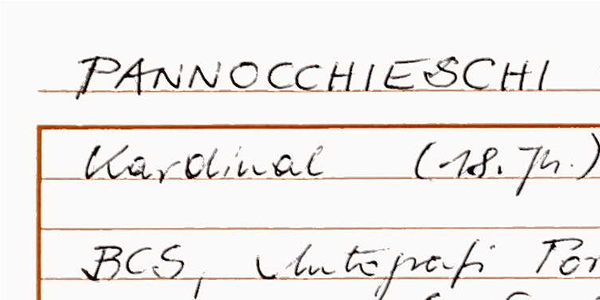 PANNOCCHIESCHI
Kardinal (18. Jh.)
BCS, Autografi